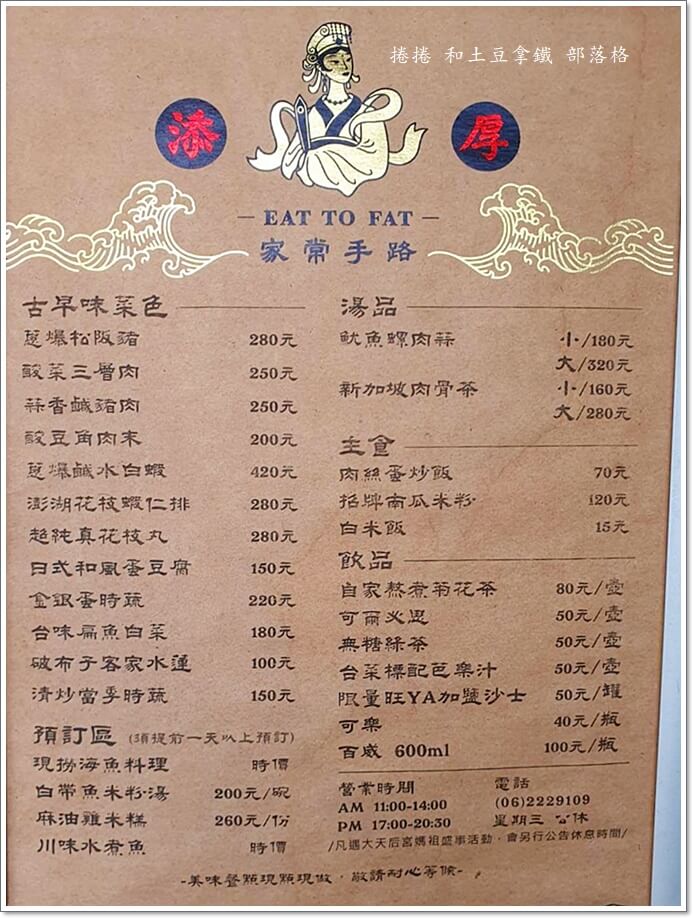 捲捲 和土豆拿鐵 部落格
添 厚
EAT TO FAT
家常手路
古早味菜色
蔥爆松阪豬 280元
酸菜三層肉 250元
蒜香鹹豬肉 250元
酸豆角肉末 200元
蔥爆鹹水白蝦 420元
澎湖花枝蝦仁排 280元
超純真花枝丸 280元
日式和風蛋豆腐 150元
金銀蛋時蔬 220元
台味扁魚白菜 180元
破布子客家水蓮 100元
清炒當季時蔬 150元
預訂區 (須提前一天以上預訂)
現撈海魚料理 時價
白帶魚米粉湯 200元/碗
麻油雞米糕 260元/份
川味水煮魚 時價
湯品
魷魚螺肉蒜 小/180元
大/320元
新加坡肉骨茶 小/160元
大/280元
主食
肉絲蛋炒飯 70元
招牌南瓜米粉 120元
白米飯 15元
飲品
自家熬煮菊花茶 80元/壺
可爾必思 50元/壺
無糖綠茶 50元/壺
台菜標配芭樂汁 50元/壺
限量旺YA加鹽沙士 50元/罐
可樂 40元/瓶
百威 600ml 100元/瓶
營業時間
AM 11:00-14:00
PM 17:00-20:30
電話
(06)2229109
星期三 公休
/凡遇大天后宮媽祖盛事活動，會另行公告休息時間/
-美味餐點現點現做，敬請耐心等候-